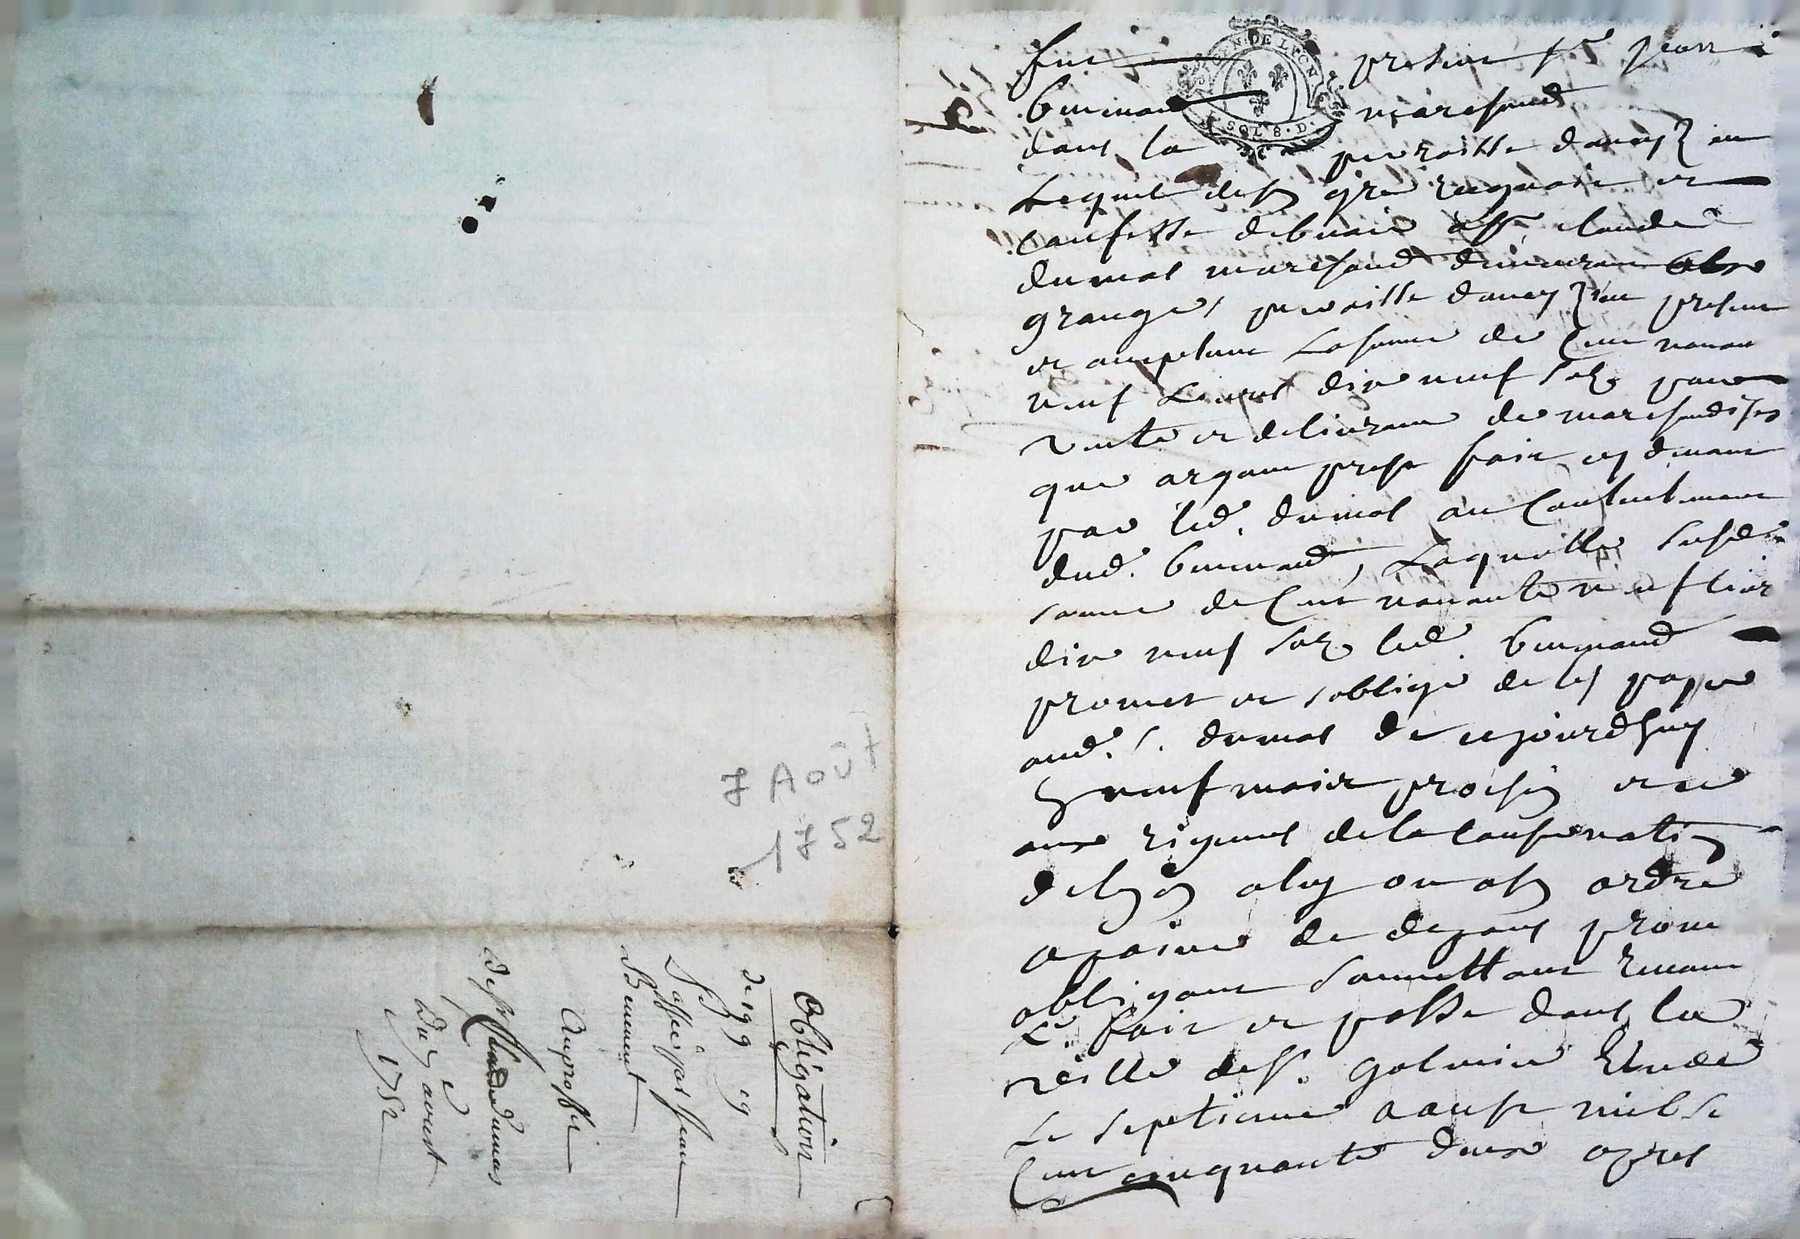 7 Août
1752
Obligation
de 199 19
Passée par Jean
Bennent
Au proffit
de sr Claude dumas
Du 7e aoust
1752
GEN. DE LYON
SOL 8. D.
fut present sr Jean
marchand
dans la parroisse
Lequel de son gré reconnoit et
confesse debvoir a sr claude
dumas marchand demeurant
granges parroisse present
et acceptant La somme de Cent nonante
neuf Livres dix neuf sols pour
vente et delivrance de marchandises
que argent presté fait cy devant
par led. dumas au Contentement
dud. Laquelle susde
somme de Cent nonante neuf livres
dix neuf sols led.
promet et s'oblige de les payer
aud. s. dumas de cejourdhuy
en neuf mois prochain et ce
aux rigueurs de la Conservation
de lyon a luy ou a son ordre
a paine de depans prom
obligeant soumettant Renonc
Le fait et passé dans la
ville de st. galmier Etude
Le septieme aoust mil se
Cent cinquante deux apres